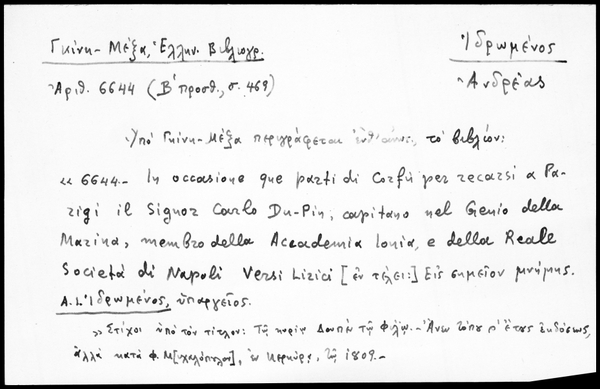 Γκίνη-Μέξα, Ἑλλην. Βιβλιογρ.
Ἰδρωμένος
Ἀριθ. 6644 (Β΄ προσθ., σ. 469)
Ἀνδρέας
Ὑπό Γκίνη-Μέξα περιγράφεται τό βιβλίον:
« 6644.- In occasione que parti di Corfù per recarsi a Pa-
rigi il Signor Carlo Du-Pin, capitano nel Genio della
Marina, membro della Accademia Ionia, e della Reale
Società di Napoli Versi Lirici [ἐν τέλει:] Εἰς σημεῖον μνήμης.
Α.Ι. Ἰδρωμένος, ὑπαργεῖος.
» Στίχοι ὑπό τόν τίτλον: Τῷ κυρίῳ Δουπέν τῷ φίλῳ.- Ἄνω τόπου ἔτους ἐκδόσεως,
ἀλλά κατά Φ. Μ[ιχαλόπουλον], ἐν Κερκύρᾳ, τῷ 1809.-